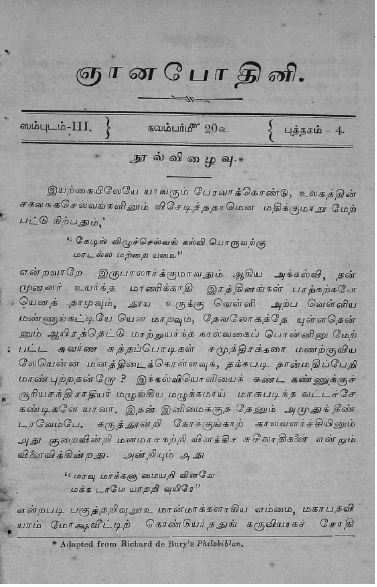 ஞானபோதினி.
ஸம்புடம்-III. } நவம்பர்மீ 20உ { புத்தகம் - 4.
நூல்விழைவு.*
இயற்கையிலேயே யாவரும் பேரவாக்கொண்டு, உலகத்தின்
சகலசுகசெல்வங்களினும் விசேடித்ததாமென மதிக்குமாறு மேற்
பட்டு நிற்பதும்,
“கேடில் விழுச்செல்வங் கல்வி யொருவற்கு
மாடல்ல மற்றை யவை”
என்றவாறே இருபாலார்க்குமாவதும் ஆகிய அக்கல்வி, தன்
முன்னர் உயர்ந்த மாணிக்காதி இரத்தினங்கள் பாற்கற்களே
யெனத் தாமும், தூய உருக்கு வெள்ளி அற்ப வெள்ளிய
மண்ணாங்கட்டியே யென மாறவும், தேவலோகத்தே யுள்ளதென்
னும் ஆயிரத்தெட்டு மாற்றுயர்ந்த காலவகைப் பொன்னினு மேற்
பட்ட சுவர்ண சுத்தப்பொடிகள் சமுத்திரக்கரை மணற்குவிய
லேயென்ன மனத்திடைக்கொள்ளவும், தக்கபடி தான்மதிப்பேறி
மாண்புற்றதன்றோ? இக்கல்வியொளியைக் கண்ட கண்ணுக்குச்
சூரியசந்திராதியர் மழுங்கிய மழுக்கமாய் மாசுபடிந்த வட்டச்சே
கண்டிகளே யாவர். இதன் இனிமைக்குத் தேனும் அமுதுந்திண்
டாவேம்பே. கருத்தூன்றி நோக்குங்காற் காலவளர்ச்சியினும்
அது குறைவின்றி மனமாசகற்றி விளக்கிச் சுசீலாதிகளை என்றும்
விளைவிக்கின்றது. அன்றியும் அது
“மாவு மாக்களு மையறி வினவே
மக்க டாமே யாறறி வுயிரே”
என்றபடி பகுத்தறிவுறூஉ மான்மாக்களாகிய எம்மை, மகாபதவி
யாம் மோக்ஷவீட்டிற் கொண்டுய்த்தற்குக் கருவியாகச் சோதி
* Adapted from Richard de Bury's Philobiblon.